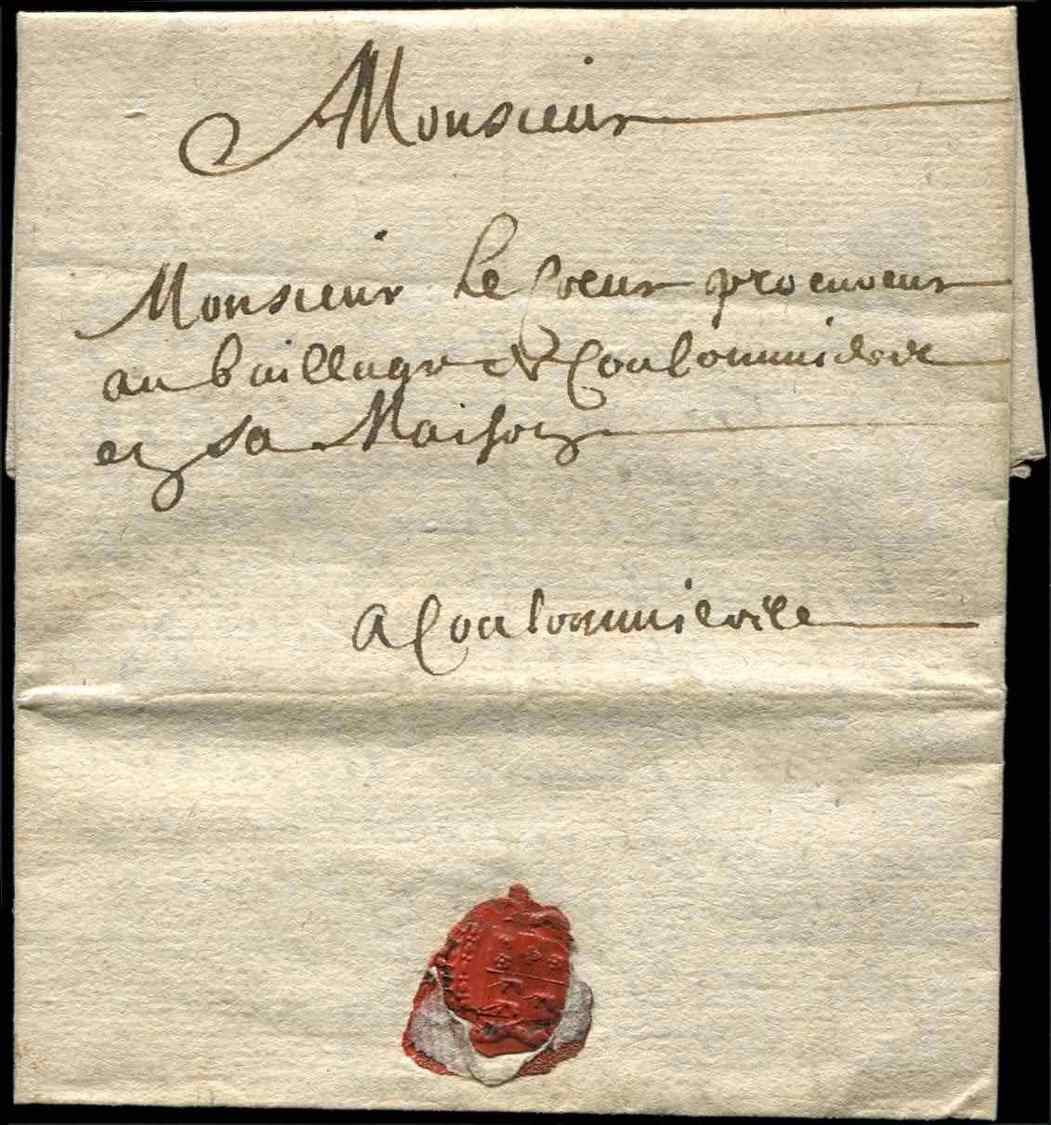 A Monsieur
Monsieur Le Coeur procureur
au baillage de
en sa Maison
A